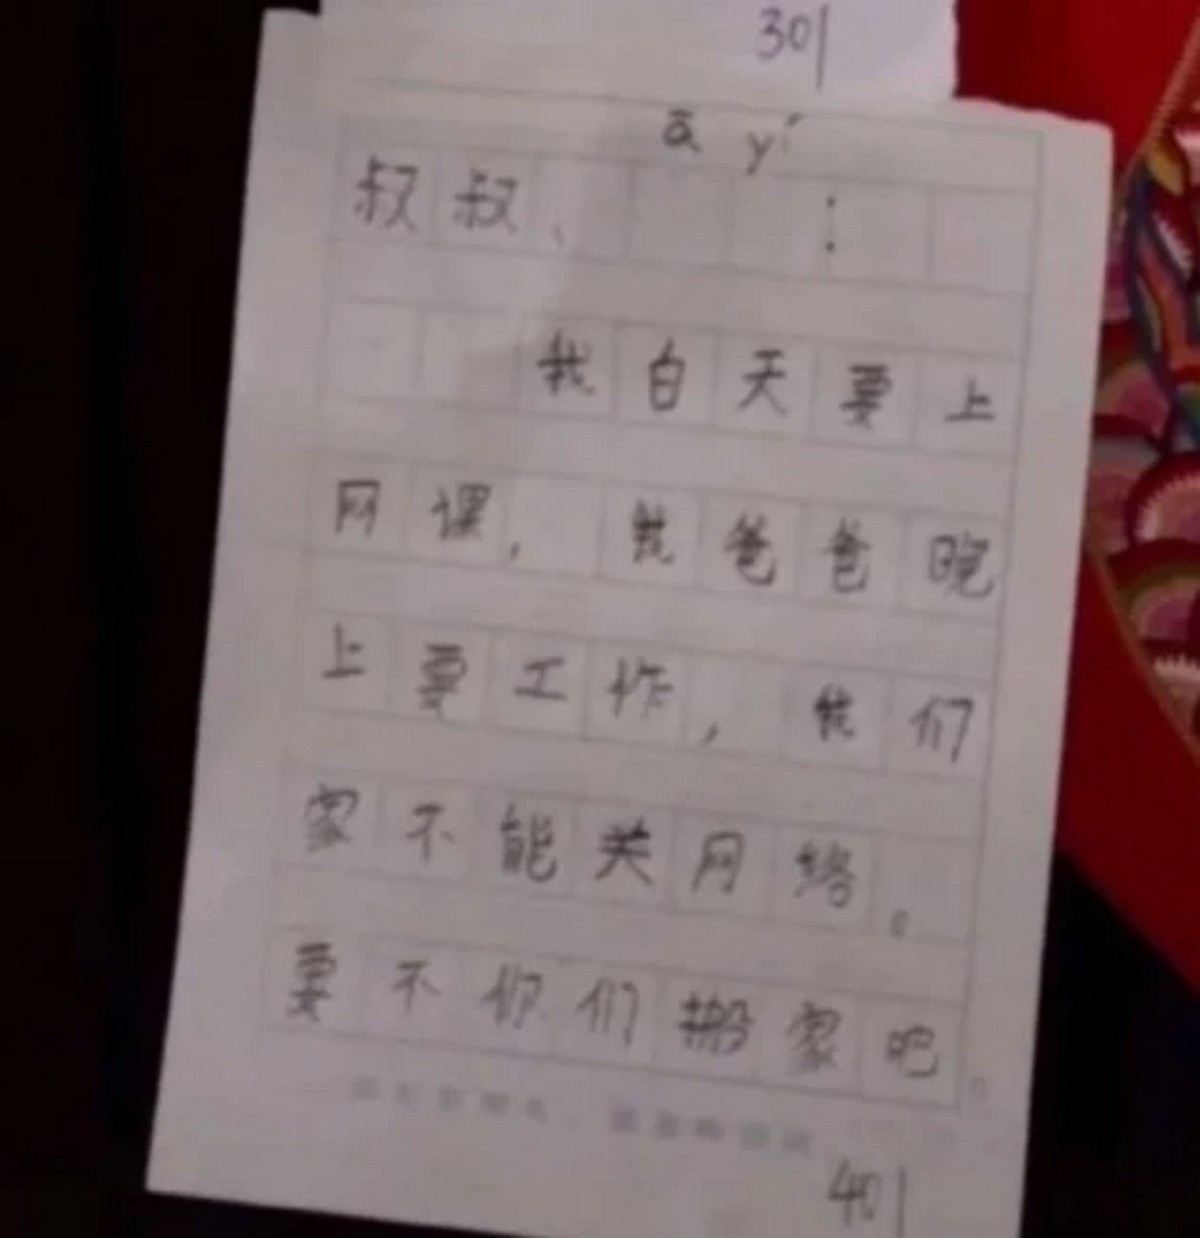 301
ā yí
叔叔、:
我白天要上
网课,我爸爸晚
上要工作,我们
家不能关网络。
要不你们搬家吧。
401